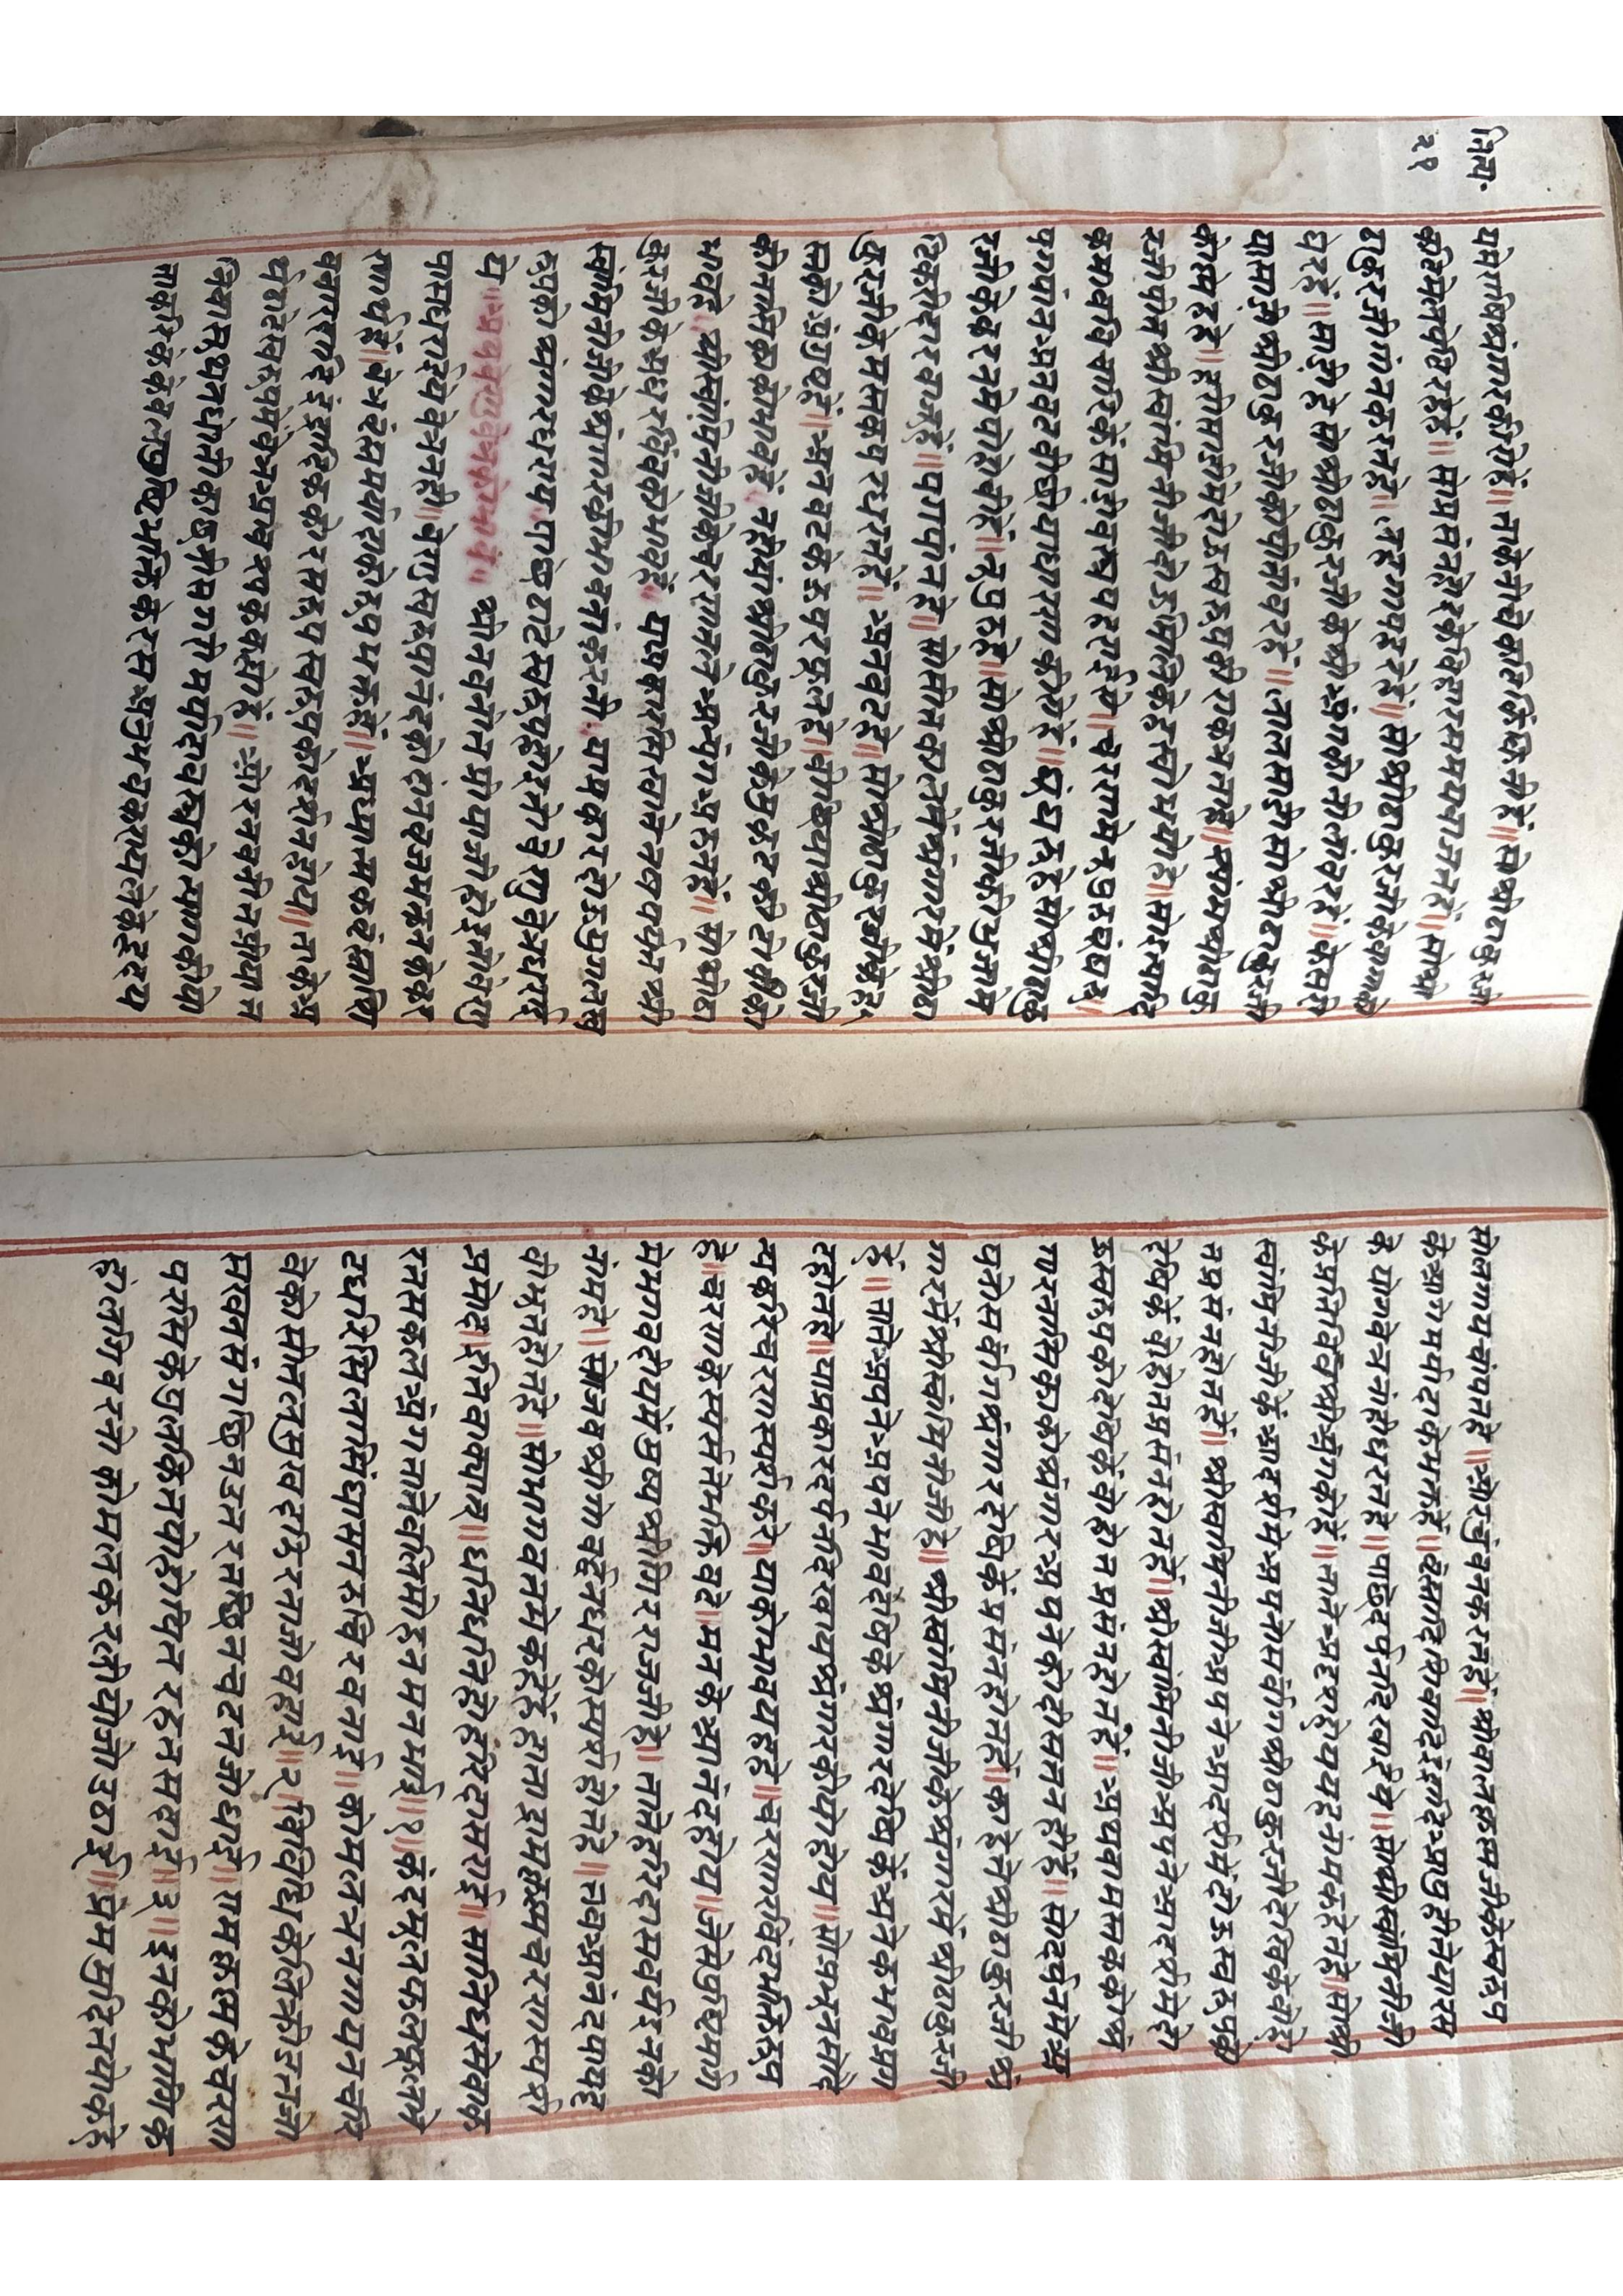 नित्य.
२१
यमेगादिशृंगारकीयेहें॥ ताकेनीचेकटिकिंकिनीहें॥ सोश्रीठाकुरजी
कटिमेंलपटिरहेहें॥ सोप्रसंनहोइकेंविहारसमयवाजतहें॥ सोश्री
ठाकुरजीगांनकरतहें॥ लहेंगापहरेहें॥ सोश्रीठाकुरजीकेवागाको
घेरहें॥ साडीहेंसोश्रीठाकुरजीकेश्रीअंगकोनीलांवरहें॥ केसरी
यासाडीश्रीठाकुरजीकोपीतांवरहें॥ लालसाडीसोश्रीठाकुरजी
कोसूथनहें॥ हरीसाडीमेंदोऊस्वरूपकीएकभनताहें॥ स्यांमश्रीठाकु
रजीपीतश्रीस्वांमिनीजीदोऊमिलिकेंहरयोभयोहें॥ सोइत्यादि
कभावविचारिकेंसाडीवस्त्रपहराईयें॥ चरणमेंनूपुरहेंघूंघरू
पगपांनअनवटवीछीयाधारणकीयेहें॥ घूंघरूहेंसोश्रीठाकु
रजीकेकरनमेंपोहोंचीहें॥ नूपुरहें॥ सोश्रीठाकुरजीकीभुजामें
टिकडीहारवाजूहें॥ पगपांनहें॥ सोसीसकलमेंशृंगारमेंश्रीठा
कुरजीकेमस्तकपरधरतहें॥ अनवटहें॥ सोश्रीठाकुरजीकेह
स्तकोअंगुष्ठहें॥ अनवटकेऊपरफूलहें॥ वीछीयाश्रीठाकुरजी
कीनासिकाकोभावहें॥ नहीयांश्रीठाकुरजीकेमुकटकीटोपीको
भावहें॥ श्रीस्वांमिनीजीकेचरणतलेआयुधचिन्हहें॥ सोश्रीठा
कुरजीकेअधरविंवकोभावहें॥ याप्रकारसिखातेनखपर्यंतश्री
स्वांमिनीजीकेशृंगारकीभावनांकरनी॥ याप्रकारदोऊयुगलस्व
रूपकोशृंगारधराय॥ पाछेंठाडेस्वरूपहोइतोवेणुवेत्रधरावे
ये॥ अथवेणुवेत्रकोभाव॥ श्रीनवनीतप्रीयाजीहोइतोवेणु
पासधराईयेवेत्रनही॥ वेणुस्वरूपानंदकोदांनव्रजभक्तनकेकर
णार्थहें॥ वेत्रहेंसमर्यादाकोरूपभक्तहें॥ अध्यात्मकहेंज्ञाधि
पचारादिहेंइत्यादिककोरसरूपस्वरूपकोदर्शनहोय॥ ताकेअ
र्थठाडेस्वरूपमेंवेत्रआवश्यकवस्तुहें॥ श्रीरनवनीतप्रीयात
निवालमूथनधोतीकाछनीसगरीमर्यादावस्त्रकोत्यागकीयो
ताकरिकेंकेवलपुष्टिभक्तिकेरसअनुभवकरायतकेंहृदय
सोलगायचांपतहें॥ ओरचुंवनकरतहें॥ श्रीवालकृस्मजीकेस्वरूप
केआगेमर्यादाकेभक्तहें॥ देसादिखेवादिइंद्रादिआयुहीतेयारस
केयोगवेत्रनाहीधरतहें॥ पाछेंदर्पनदिखाईयें॥ सोश्रीस्वांमिनीजी
केप्रतिविंवश्रीअंगकोहें॥ तातेंआदर्शहोययहनांमकहतहें॥ सोश्री
स्वांमिनीजीकेंआदर्शमेंआपनोसर्वांगश्रीठाकुरजीदेखिकेंवोहो
तप्रसंनहोतहें॥ श्रीस्वांमिनीजीआपनेआदर्शमेंदोऊस्वरूपकों
देखिकेंवोहोतप्रसंनहोतहें॥ श्रीस्वांमिनीजीआपनेआदर्शमेंदो
ऊस्वरूपकोदेखिकेंवोहोतप्रसंनहोतहें॥ अथवामस्तककोशृं
गारनासिकाकोशृंगारआपनेकोदीसतनहीहें॥ सोदर्पनमेंआ
पनोसर्वांगशृंगारदेखिकेंप्रसंनहोतहें॥ काहेतेंश्रीठाकुरजीशृं
गारमेंश्रीस्वांमिनीजीहें॥ श्रीस्वांमिनीजीकेशृंगारमेंश्रीठाकुरजी
हें॥ तातेंआपनेआपनेभावदेखिकेशृंगारदेखिकेंअनेकभावप्रग
टहोतहें॥ याप्रकारदर्पनदिखायशृंगारकीयोहोय॥ सोप्रभूनसोंदे
न्यकरिचरणस्पर्शकरें॥ याकोभावयहहें॥ चरणार्विंदभक्तिरूप
हें॥ चरणकेस्पर्शतेभक्तिवढे॥ मनकेआनंदहोय॥ जेसेंपुष्टिमार्ग
मेंभगवदीयमेंमुख्यश्रीगिरराजजीहें॥ तातेंहरिदासवर्यइनको
नांमहें॥ सोजवश्रीगोवर्द्धनधरकोस्पर्शहोतहे॥ तवआनंदपायहृ
वीभूतहोतहे॥ सोभागवतमेंकहेहेंहंतायमद्रिकृस्मचरणस्पर्श
प्रमोद॥ इतिवाक्यात्॥ धनिधनिहोहरिदासराई॥ सानिध्यसेवाकें
रतसकलअंगतातेवलिमोहनमनभाई॥१॥ कंदमूलफलफूलनसे
टधरिसिलासिंघासनरुचिरवनाई॥ कोमलत्रनगायनचारि
वेकोसीतलसुखदाईझरनाजीवहाई॥२॥ विविधिकेलिक्रीडतजो
मरवनसंगछिनउतरतछिनचढतजोधाई॥ रामकृस्मकेंचरण
परसिकेंपुलकितरोहोयिनरहतसदाई॥३॥ इनकोभागिक
होंलगिवरनोकोमलकरलीयोजोउठाई॥ प्रेममुदितयोंकहें